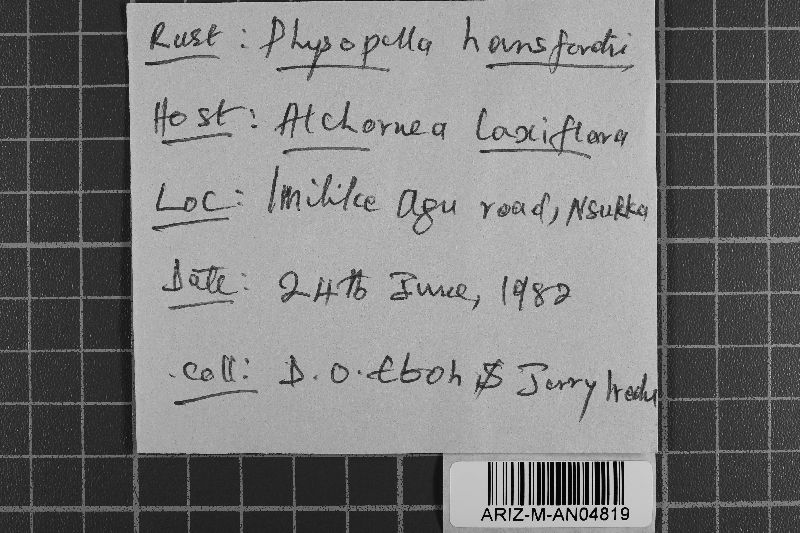 Rust: Physopella hansfordii
Host: Alchornea laxiflora
Loc: Imilike Agu road, Nsukka
Date: 24th June, 1982
Coll: D.O. Eboh & Jerry
ARIZ-M-AN04819